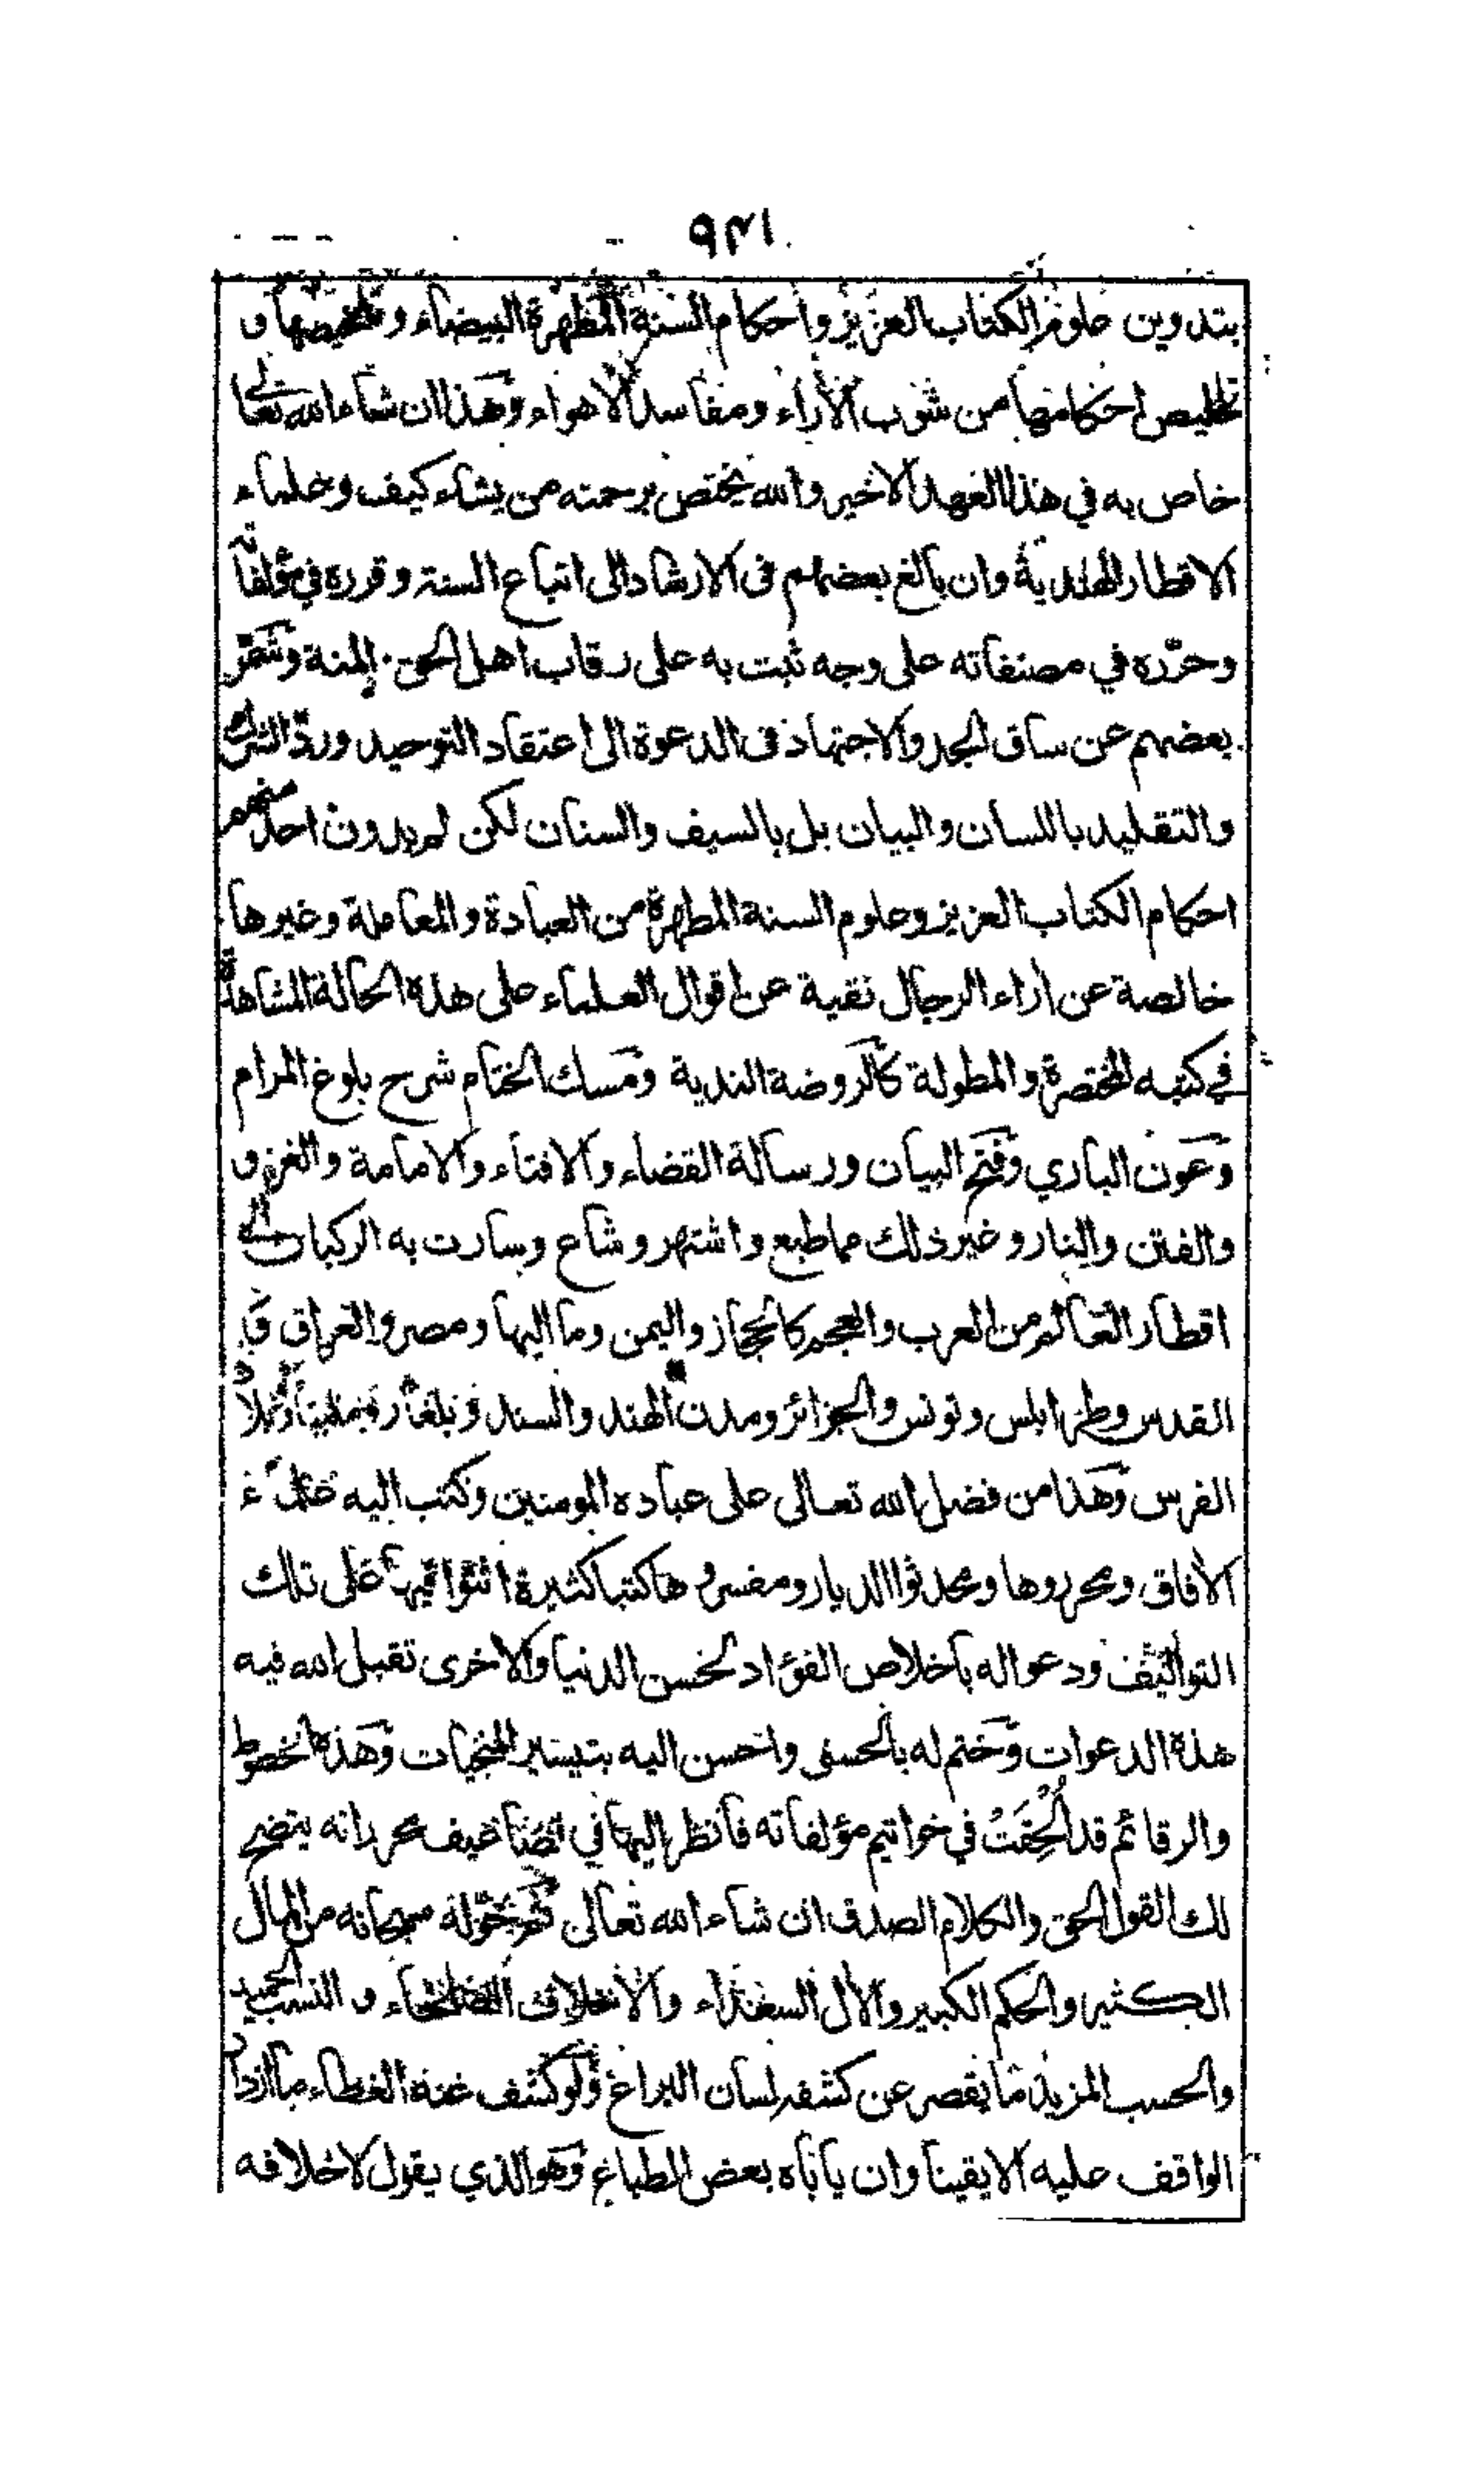 ٩٣١
بتدوين علوم الكتاب العزيز واحكام السنة المطهرة البيضاء وتلخيصها و
تخليص احكامها من شوب الأراء ومفاسد الاهواء وهذا ان شاء الله تعالى
خاص به في هذا العهد الاخير والله يختص برحمته من يشاء كيف وعلماء
الاقطار الهندية وان بالغ بعضهم فى الارشاد الى اتباع السنة وقرره في مؤلفاته
وحرّره في مصنفاته على وجه ثبت به على رقاب اهل الحق المنة وشمّر
بعضهم عن ساق الجد والاجتهاد فى الدعوة الى اعتقاد التوحيد وردّ الشرك
والتقليد باللسان والبيان بل بالسيف والسنان لكن لم يدون احد منهم
احكام الكتاب العزيز وعلوم السنة المطهرة من العبادة والمعاملة وغيرها
خالصة عن اراء الرجال نقية عن اقوال العلماء على هذه الحالة المشاهدة
في كتبه المختصرة والمطولة كالروضة الندية ومسك الختام شرح بلوغ المرام
وعون الباري وفتح البيان ورسالة القضاء والافتاء والامامة والغزو
والفتن والنار وغير ذلك مما طبع واشتهر وشاع وسارت به الركبان الى
اقطار العالم من العرب والعجم كالحجاز واليمن وما اليها ومصر والعراق و
القدس وطرابلس وتونس والجزائر ومدن الهند والسند وبلغار وبلاد
الفرس وهذا من فضل الله تعالى على عباده المومنين وكتب اليه علماء
الأفاق ومحرروها ومحدثوا الديار ومفسروها كتبا كثيرة اثنوا فيها على تلك
التواليف ودعوا له باخلاص الفؤاد لحسن الدنيا والاخرى تقبل الله فيه
هذه الدعوات وختم له بالحسنى واحسن اليه بتيسير المنجيات وهذه الخطوط
والرقائم قد اُلْحِقَتْ في خواتيم مؤلفاته فانظر اليها في تضاعيف محرراته يتضح
لك القول الحق والكلام الصدق ان شاء الله تعالى ثم خوّله سبحانه من المال
الكثير والحكم الكبير والأل السعداء والاخلاق والنسب الحميد
والحسب المزيد ما يقصر عن كشفه لسان اليراع ولو كشف عنه الغطاء ما ازداد
الواقف عليه الا يقينا وان يأباه بعض الطباع وهو الذي يقول لاخلافه